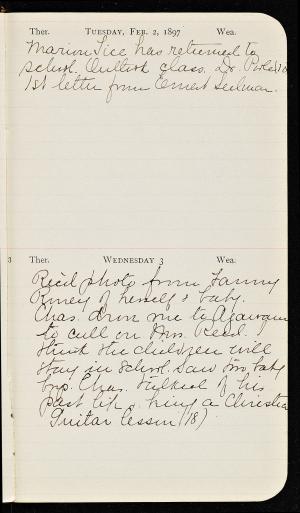 Ther. TUESDAY, FEB. 2, 1897 Wea.
Marion Tice has returned to
school. class. Dr.
1st letter from Ernest
3 Ther. WEDNESDAY 3 Wea.
Rec'd photo from Fanny
of herself & baby.
Chas. drove me to Agawam
to call on Mrs. Reed.
think the children will
stay in School. Saw
Chas. talked of his
past life, being a Christian
Guitar lesson (18)